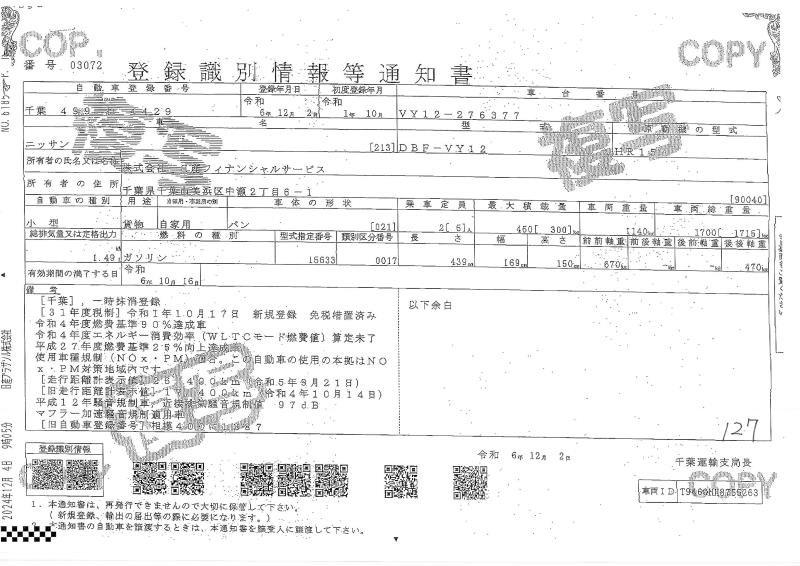 COPY
番号 03072
登録識別情報等通知書
自動車登録番号 登録年月日 初度登録年月 車台番号
千葉 令和 6年12月 2日 令和 1年10月 VY12-276377
車名 型式 原動機の型式
ニッサン [213] DBF-VY12 HR15
所有者の氏名又は名称 株式会社 日産フィナンシャルサービス
所有者の住所 千葉県千葉市美浜区中瀬2丁目6-1 [90040]
自動車の種別 用途 自家用・事業用の別 車体の形状 乗車定員 最大積載量 車両重量 車両総重量
小型 貨物 自家用 バン [021] 2[ 5]人 450[ 300]kg 1140kg 1700[ 1715]kg
総排気量又は定格出力 燃料の種別 型式指定番号 類別区分番号 長さ 幅 高さ 前前軸重 前後軸重 後前軸重 後後軸重
1.49 ガソリン 15633 0017 439cm 169cm 150cm 670kg -kg -kg 470kg
有効期間の満了する日 令和 6年10月16日
備考
[千葉],一時抹消登録
[31年度税制]令和1年10月17日 新規登録 免税措置済み
令和4年度燃費基準90%達成車
令和4年度エネルギー消費効率(WLTCモード燃費値)算定未了
平成27年度燃費基準25%向上達成車
使用車種規制(NOx・PM)適合。この自動車の使用の本拠はNO
x・PM対策地域内です。
[走行距離計表示値] 400km(令和5年9月21日)
[旧走行距離計表示値] 400km(令和4年10月14日)
平成12年騒音規制車、近接排気騒音規制値 97dB
マフラー加速騒音規制適用車
[旧自動車登録番号]相模400
以下余白
127
登録識別情報
令和 6年12月 2日
千葉運輸支局長
COPY
車両ID
1.本通知書は、再発行できませんので大切に保管して下さい。
(新規登録、輸出の届出等の際に必要になります。)
2.本通知書の自動車を譲渡するときは、本通知書を譲受人に譲渡して下さい。
複写
複写
複写
COPY
COPY
2024年12月 4日 9時05分